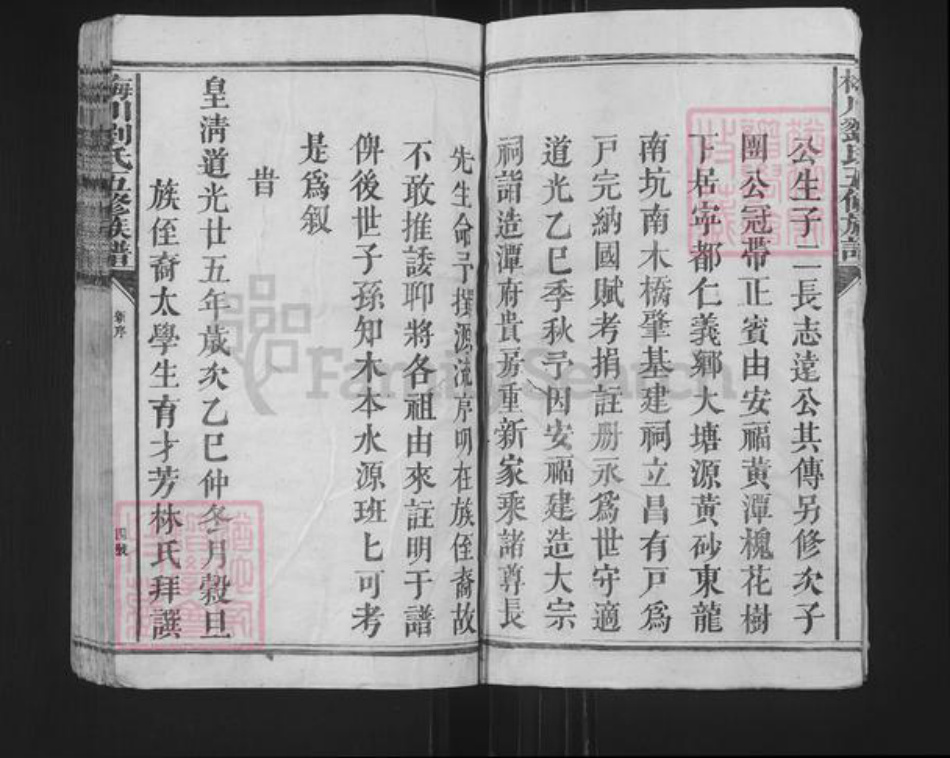 梅川劉氏五修族譜
公生子二長志達公其傳另修次子
團公冠帶正賓由安福黃潭槐花樹
下居寧都仁義鄉大塘源黃砂東龍
南坑南木橋肇基建祠立昌有戶為
戶完納國賦考捐註册永為世守適
道光乙巳季秋予因安福建造大宗
祠詣造潭府貴房重新家乘諸尊長
先生命予撰源流序明在族侄裔故
不敢推諉聊將各祖由來註明于譜
俾後世子孫知木本水源班匕可考
是爲叙
旹
皇清道光廿五年歲次乙巳仲冬月穀旦
族侄裔太學生育才芳林氏拜譔
梅川劉氏五修族譜
新序
四號
FamilySearch